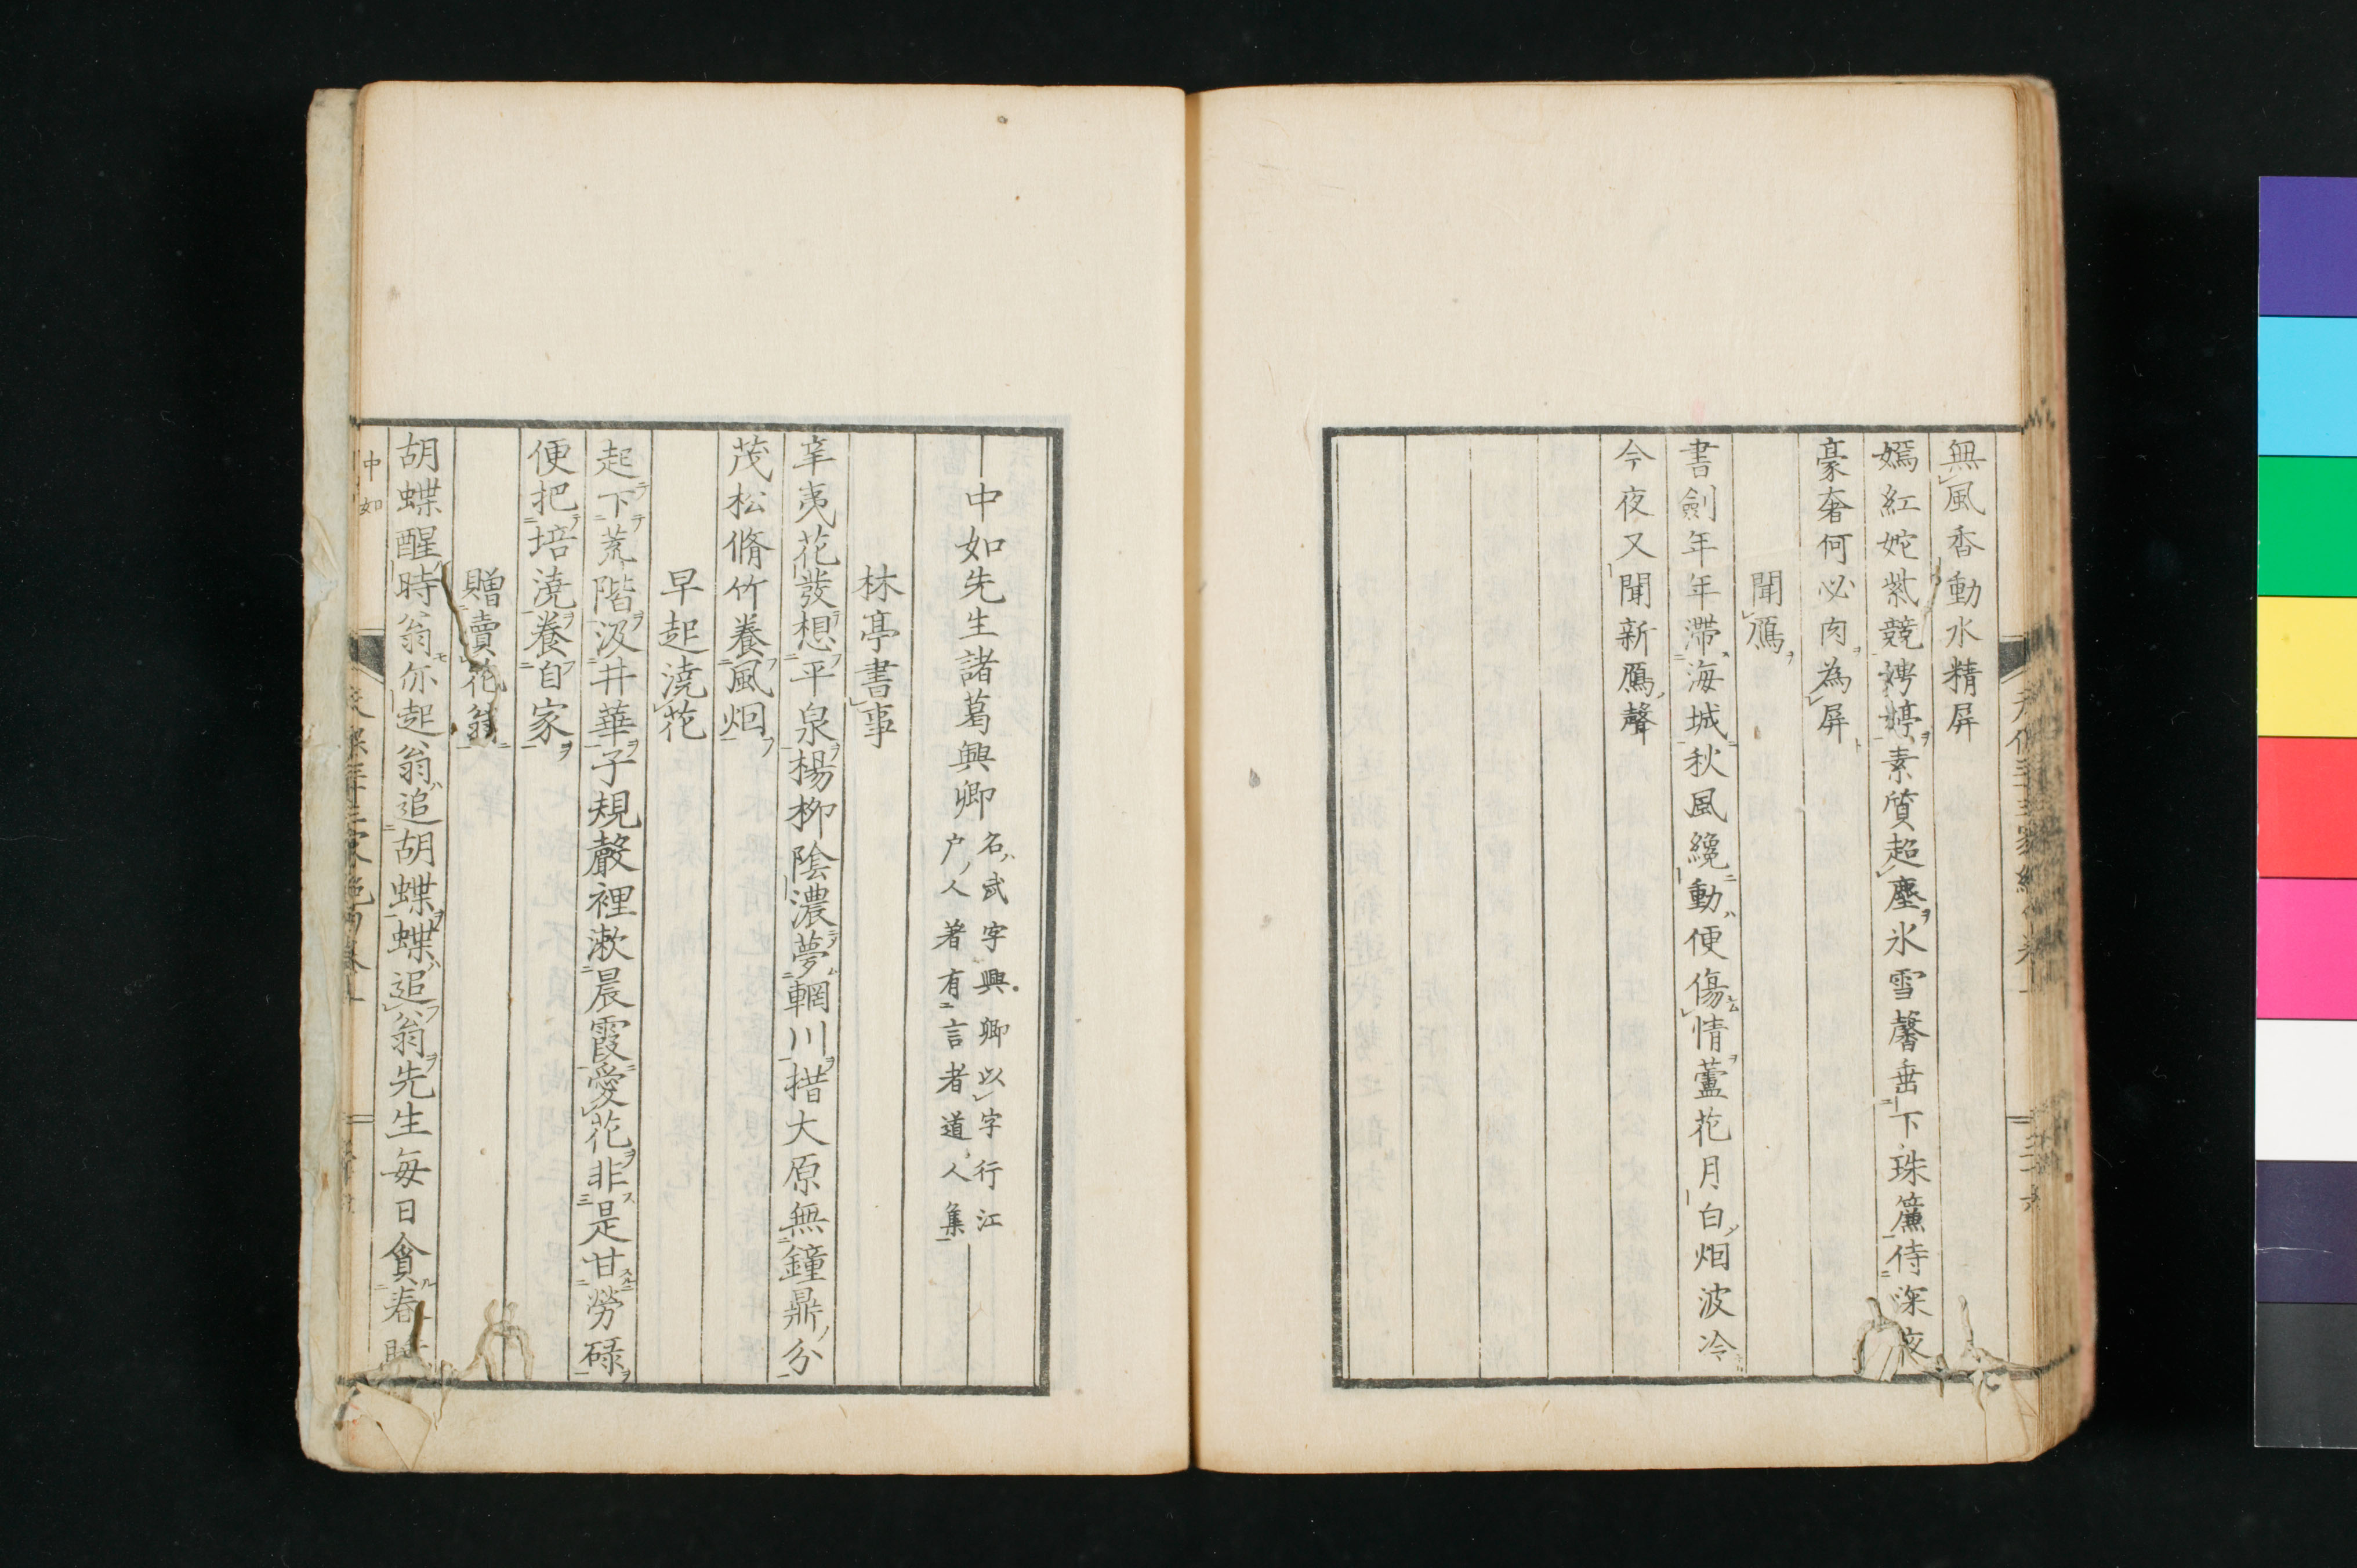 無風香動水精屏
嫣紅姹紫競娉婷素質超塵氷雪馨垂下珠簾侍深夜
豪奢何必肉為屏
聞鴈
書劍年年滯海城秋風纔動便傷情蘆花月白烟波冷
今夜又聞新鴈聲
中如先生諸葛興卿
名ハ武字興卿以字行江
户ノ人著有言者道人集
林亭書事
辛夷花發想平泉楊柳陰濃夢輞川措大原無鐘鼎分
茂松脩竹養風烟
早起澆花
起下荒階汲井華子規聲裡漱晨霞愛花非是甘勞碌
便把培澆養自家
贈賣花翁
胡蝶醒時翁亦起翁追胡蝶蝶追翁先生每日貪春睡
中如